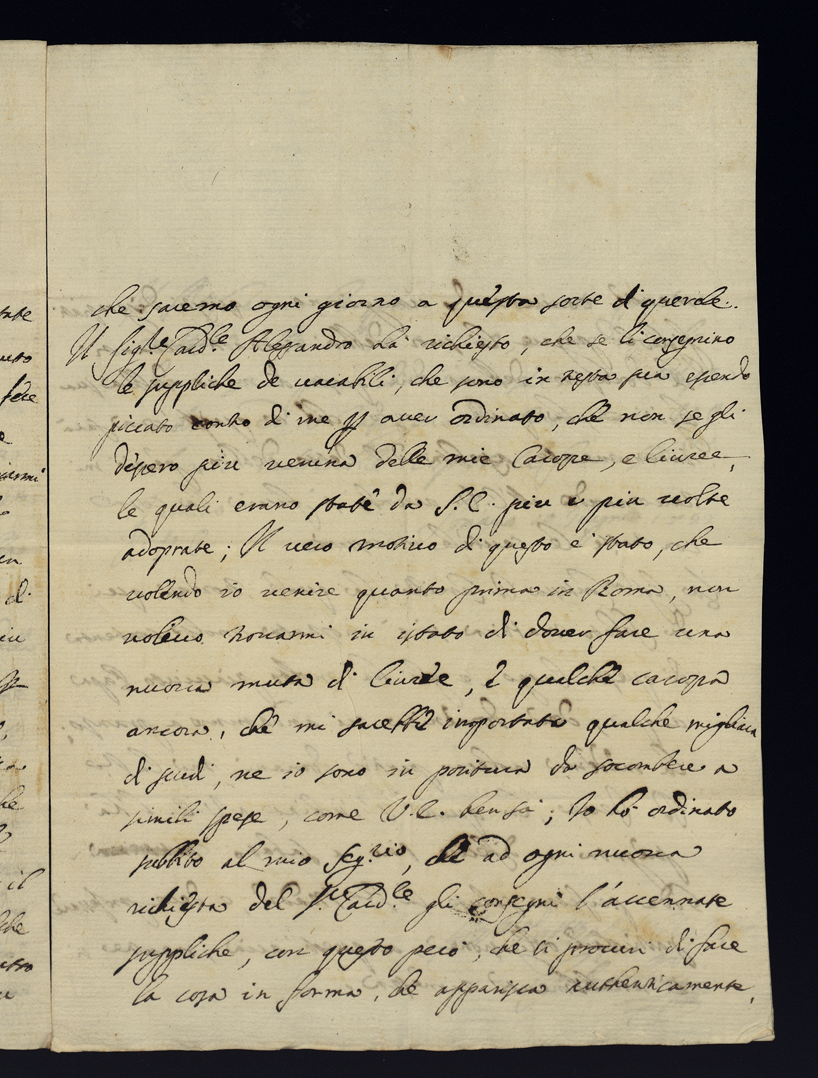 che saremo ogni giorno a questa sorte di querele.
Il Sig.re Card.le Alessandro hà richiesto, che se li consegnino
le suppliche de vacabili, che sono in testa sua essendo
piccato contro di me p aver ordinato, che non se gli
dassero più venina delle mie Carozze, e livree,
le quali erano state da S.E. più e più volte
adoprate; Il vero motivo di questo è stato, che
volendo io venire quanto prima in Roma, non
volevo trovarmi in istato di dover fare una
nuova muta di livree, e qualche carozza
ancora, che mi sarebbe importata qualche migliara
di scudi, ne io sono in positura da socombere a
simili spese, come V.E. ben sà; Io hò ordinato
subbito al mio Seg.rio, che ad ogni nuova
richiesta del S.re Card.le gli consegni l'accennate
suppliche, con questo però, che si procuri di fare
la cosa in forma, che apparisca authenticamente,